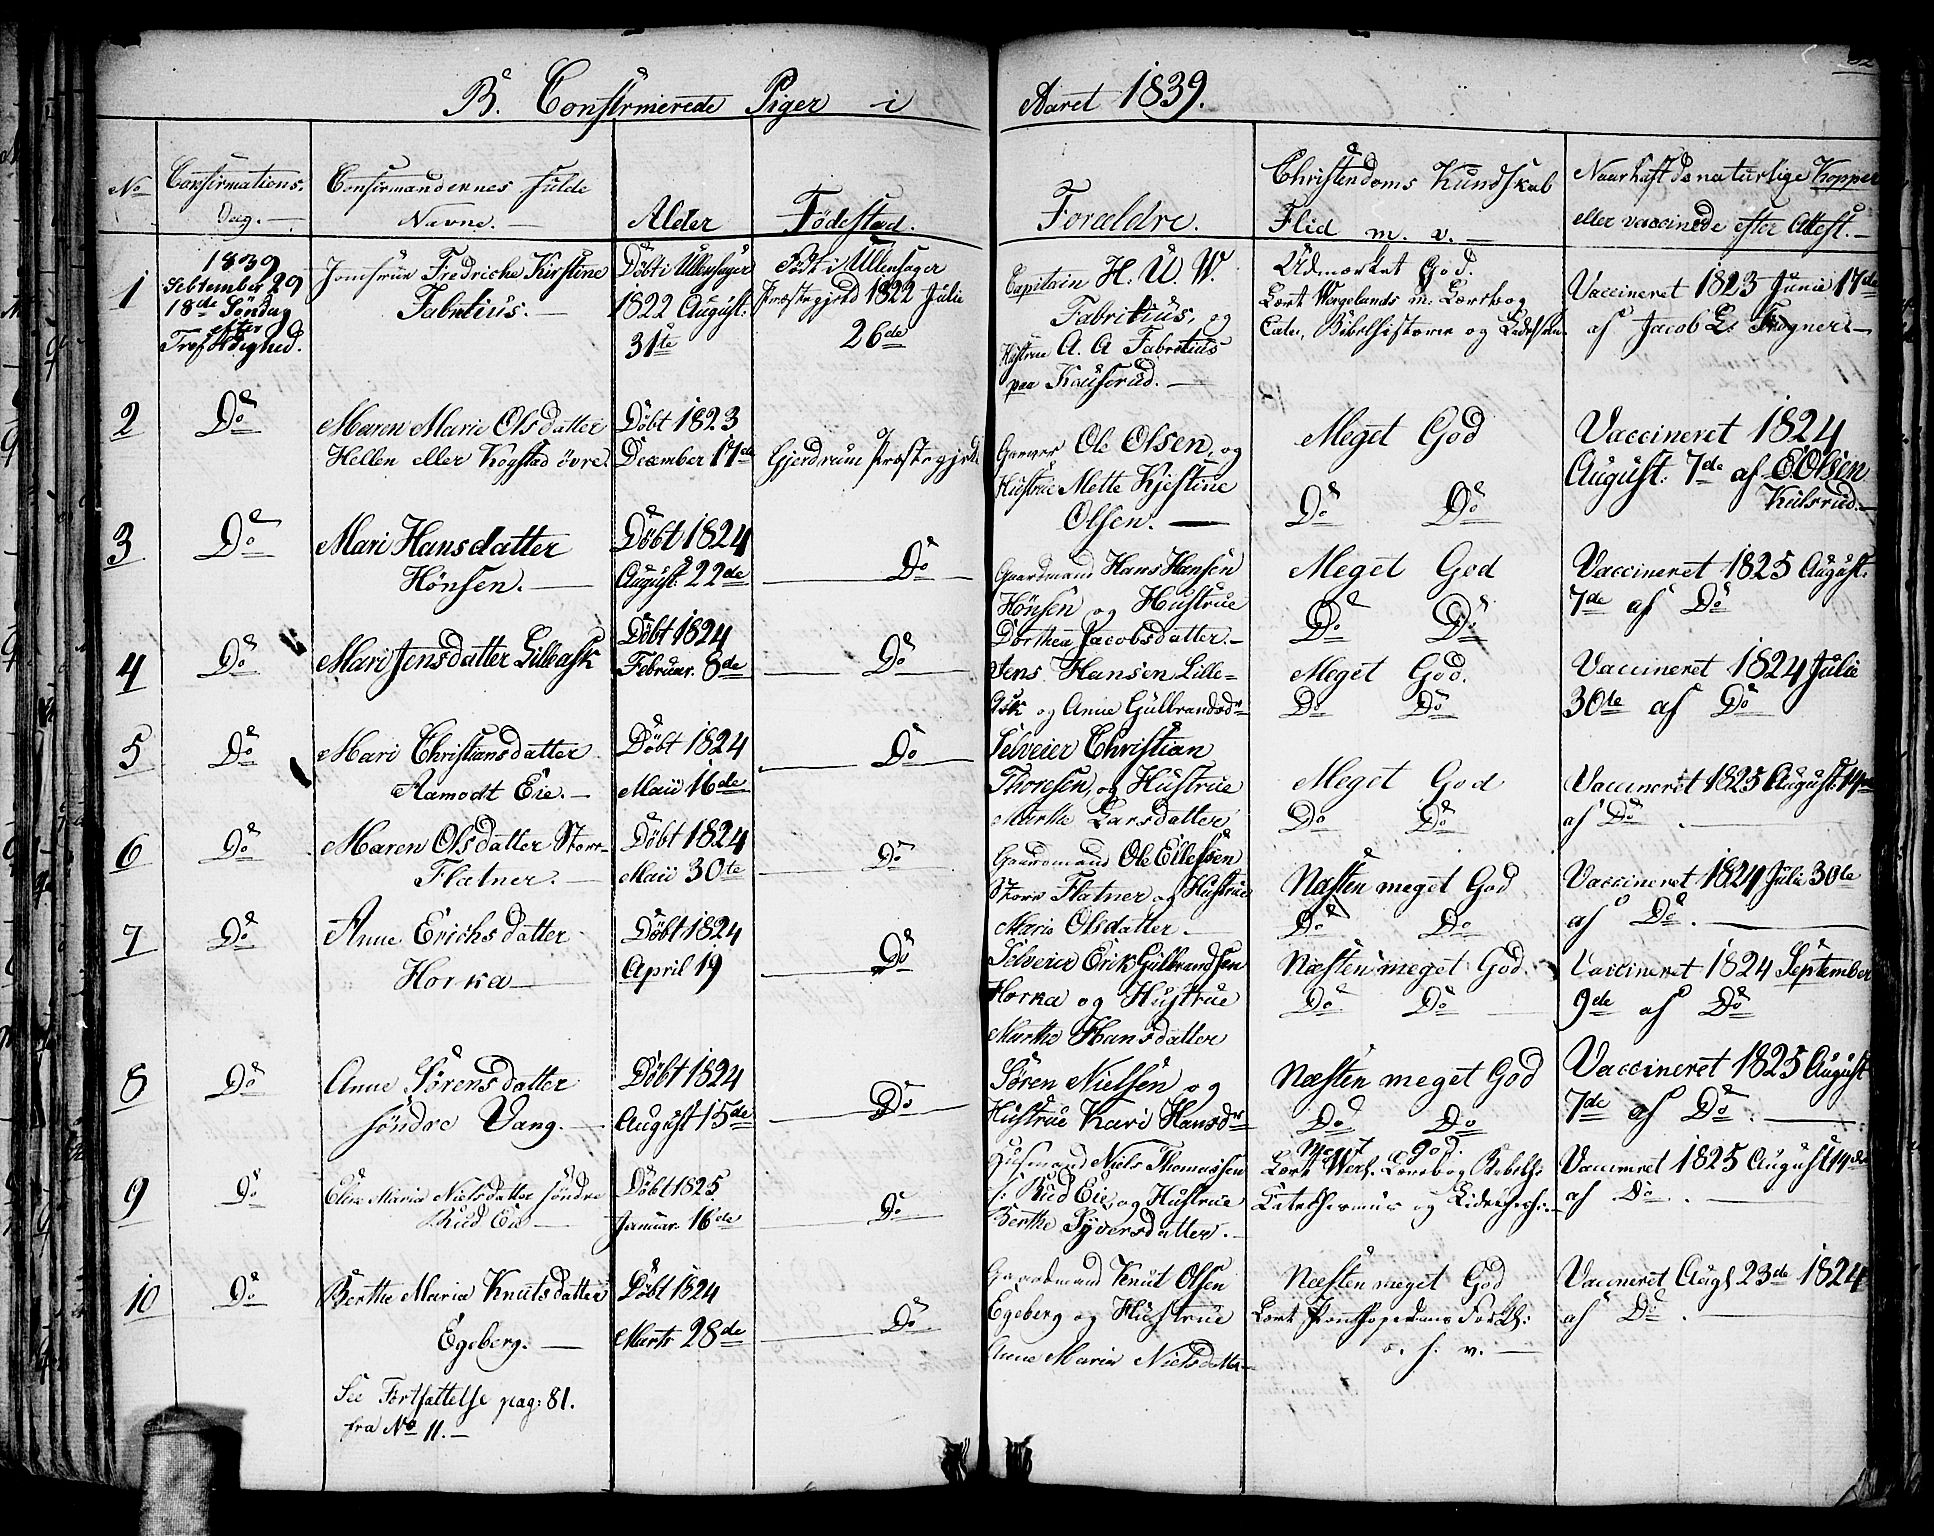 B. Confirmerede Piger i Aaret 1839.
No
Confirmations.
Dag.
Confirmandernes fulde
Navne.
Alder
Födestad.
Foraldre.
Christendoms Kundskab
Flid m. v.
Naar haft de naturlige Kopper
eller vaccinede efter Attest.
1
1839
September 29
18de Söndag
efter
Jomfrue Fredricke Kirstine
Fabritius.
Döbt i Ullensager
1822 August.
31te
Födt i Ullensager
Præstegjeld 1822 Julii
26de
Capitain H. U. W.
Fabritius, og
Hustrue A. A Fabritius
paa
Udmærket God.
Lært m. Lærebog
Bibelhistorie og
Vaccineret 1823 Junii 17de
af Jacob L.
2
Do
Maren Marie Olsdatter
Hellen eller Kogstad övre
Döbt 1823
December 17de
Gjerdrum Præstegjeld
Garver Ole Olsen, og
Hustrue Mette Kjestine
Olsen.
Meget God
Do Do
Vaccineret 1824
August. 7de af E Olsen
Kulsrud
3
Do
Mari Hansdatter
Hönsen.
Döbt 1824
August. 22de
Do
Gaardmand Hans Hansen
Hönsen og Hustrue
Dorthea Jacobsdatter.
Meget God
Do Do
Vaccineret 1825 August.
7de af Do
4
Do
Mari Jensdatter Lilleask
Döbt 1824
Februar. 8de
Do
Jens Hansen Lille-
Ask og Anne Gulbrandsdr
Meget God.
Do Do
Vaccineret 1824 Julii
30te af Do
5
Do
Mari Christiansdatter
Aamodt Eie.
Döbt 1824
Maii 16de
Do
Selveier Christian
Thoresen, og Hustrue
Marthe Larsdatter
Meget God
Do Do
Vaccineret 1825 August. 14de
af Do
6
Do
Maren Olsdatter Store
Flatner.
Döbt 1824
Maii 30te
Do
Gaardmand Ole Ellefsen
Store Flatner og Hustrue
Marie Olsdatter
Næsten meget God
Do Do
Vaccineret 1824 Julii 30te
af Do.
7
Do
Anne Erichsdatter
Horka
Döbt 1824
April 19
Do
Selveier Erik Gulbrandsen
Horka og Hustrue
Marthe Hansdatter
Næsten meget God.
Do Do
Vaccineret 1824 September
9de af Do
8
Do
Anne Sörensdatter
söndre Vang.
Döbt 1824
August 15de
Do
Sören Nielsen og
Hustrue Kari Hansdr
Næsten meget God
Do Do
Vaccineret 1825 August
7de af Do.
9
Do
Eline Maria Nielsdatter söndre
Rud Eie
Döbt 1825.
Januar. 16de
Do
Husmand Niels Thomassen
s. Rud Eie, og Hustrue
Berthe Syversdatter.
Meget god.
Lært Lærebog
og
Vaccineret 1825 August 14de
af Do.
10
Do
Berthe Maria Knutsdatter
Egeberg.
Döbt 1824
Marts 28de
Do
Gaardmand Knut Olsen
Egeberg og Hustrue
Anne Maria Nielsdatter
Næsten meget God
Lært Pontoppidans Forkl:
o. s. v.
Vaccineret Augs 23de 1824
af Do.
See Fortsættelse pag: 81.
fra No 11.